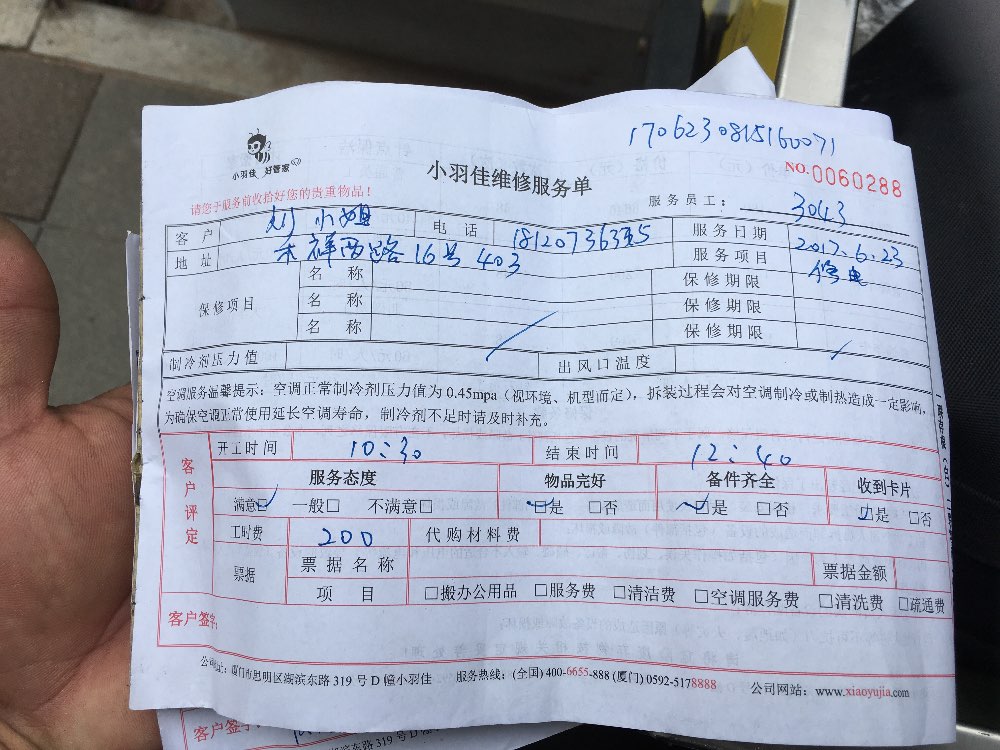 1706230815160071
小羽佳 好管家
小羽佳维修服务单
NO.0060288
请您于服务前收拾好您的贵重物品！
服务员工： 3043
客户 刘小姐 电话 服务日期 2017.6.23
地址 禾祥西路16号403 服务项目 修电
保修项目 名称 保修期限
名称 保修期限
名称 保修期限
制冷剂压力值 出风口温度
空调服务温馨提示：空调正常制冷剂压力值为0.45mpa（视环境、机型而定），拆装过程会对空调制冷或制热造成一定影响，
为确保空调正常使用延长空调寿命，制冷剂不足时请及时补充。
客户评定
开工时间 10:30 结束时间 12:40
服务态度 物品完好 备件齐全 收到卡片
满意☑ 一般□ 不满意□ ☑是 □否 ☑是 □否 ☑是 □否
工时费 200 代购材料费
票据 票据名称 票据金额
项目 □搬办公用品 □服务费 □清洁费 □空调服务费 □清洗费 □疏通费
客户签名:
公司地址：厦门市思明区湖滨东路319号D幢小羽佳 服务热线：(全国) 400-6655-888 (厦门) 0592-5178888 公司网站：www.xiaoyujia.com
客户签
东路 319 号 D 幢小羽佳